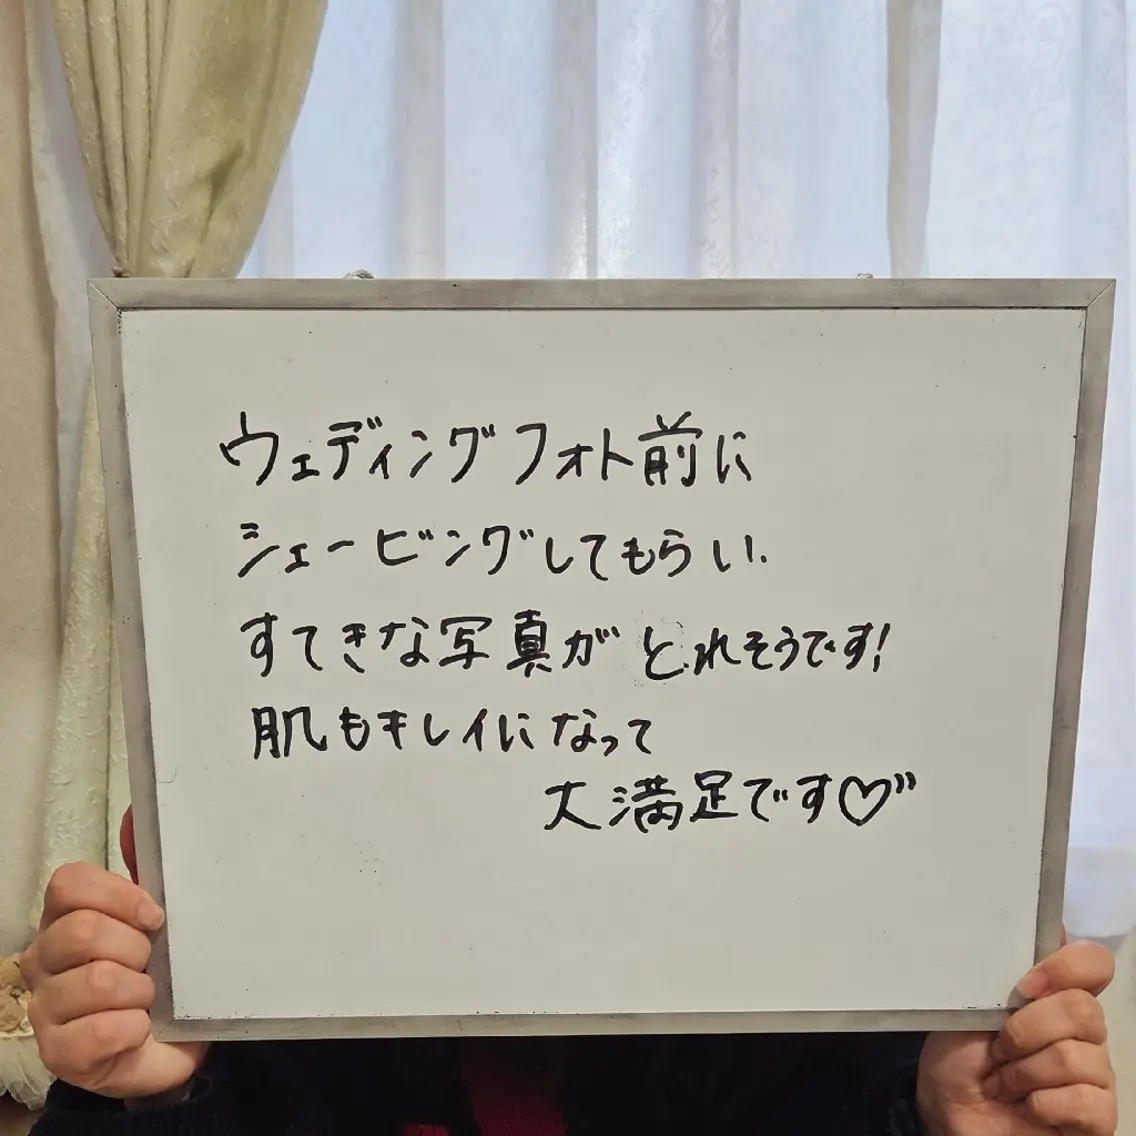 ウェディングフォト前に
シェービングしてもらい、
すてきな写真がとれそうです!
肌もキレイになって
大満足です♡”